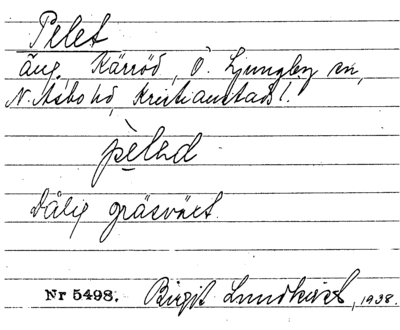 Pelet
äng, Kärröd, Ö. Ljungby sn,
N. Åsbo hd, Kristianstads l.
pèləd
Dålig gräsväxt.
Nr 5498. Birgit Lundkvist, 1938.